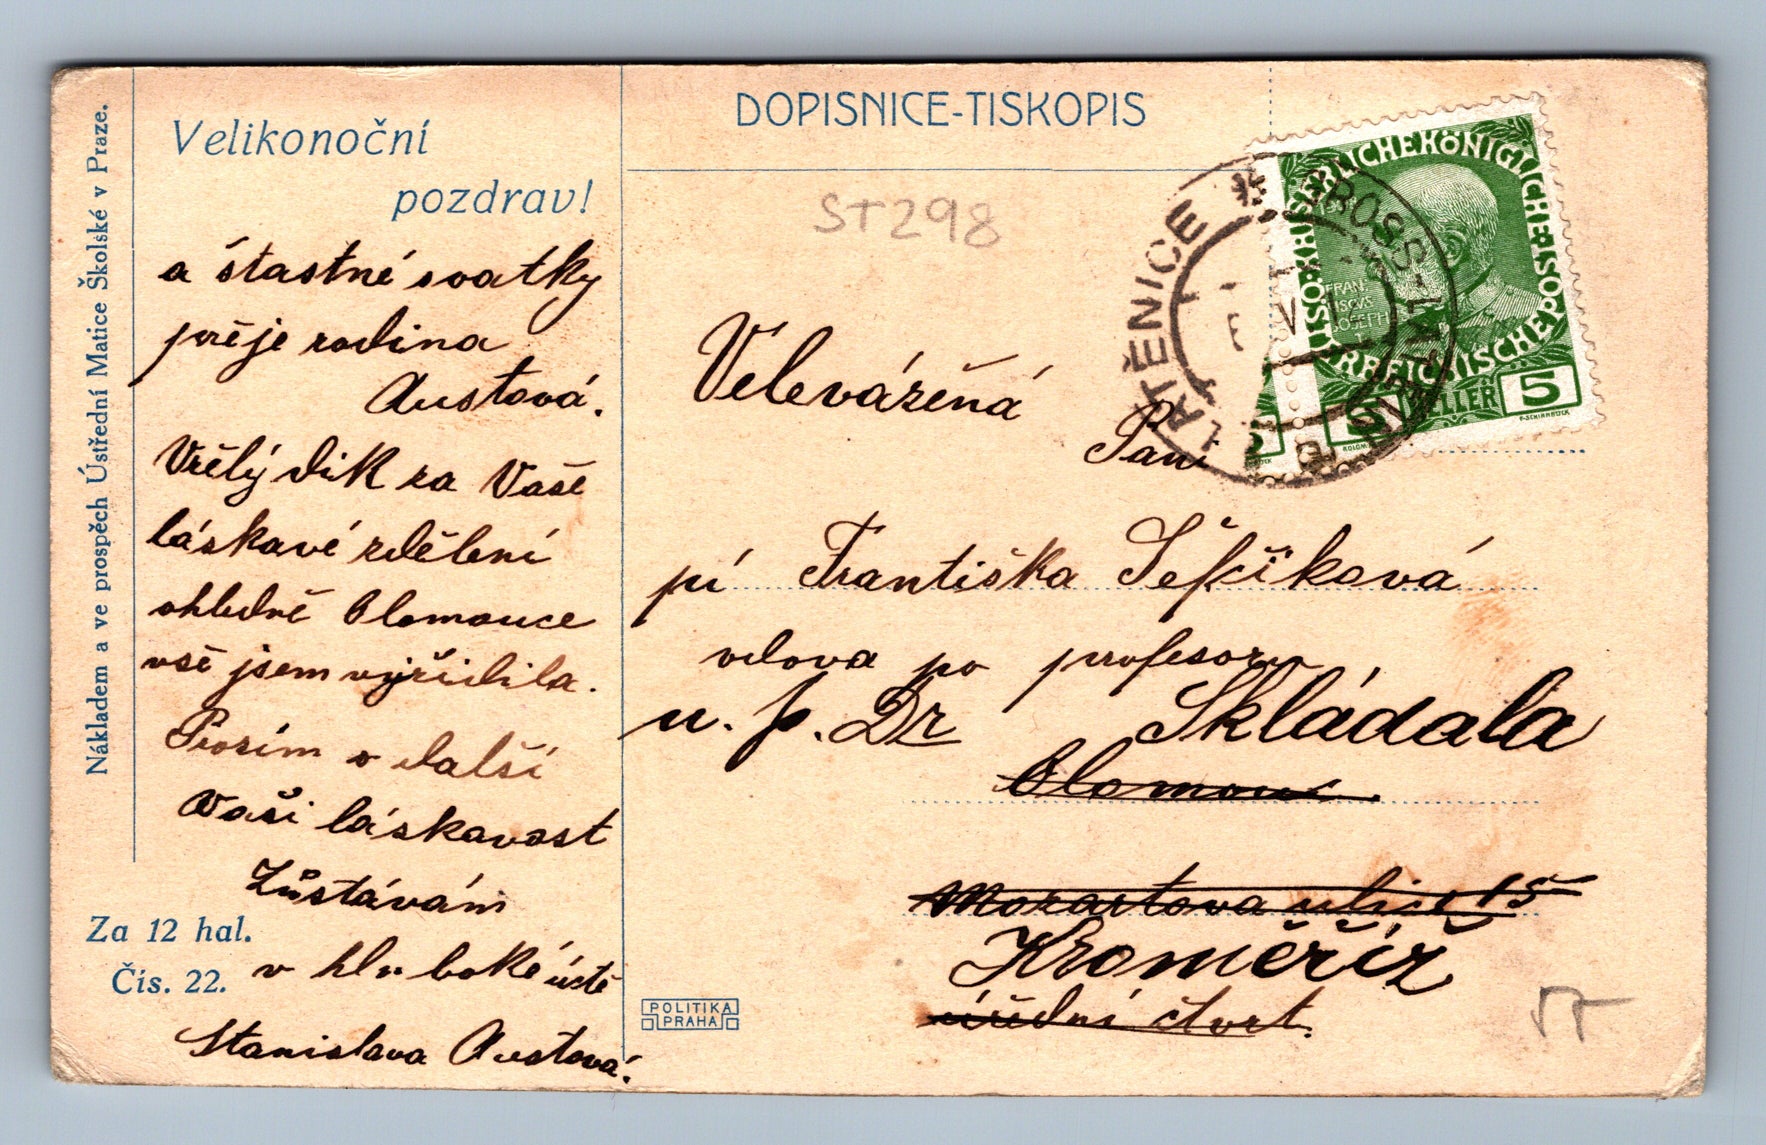 Nákladem a ve prospěch Ústřední Matice Školské v Praze.
Velikonoční
pozdrav!
a štastné svatky
přeje rodina
Austová.
Vřelý dik za Vaše
láskavé zdělení
ohledně Olomouce
vše jsem vyřidila.
Prosím o další
Vaši láskavost
Zůstávám
v hluboké úctě
Stanislava Austová.
Za 12 hal.
Čís. 22.
DOPISNICE-TISKOPIS
ST298
KAISERLICHE KÖNIGLICHE
ÖSTERREICHISCHE POST
FRAN-
CISCVS
JOSEPH I
5 HELLER 5
LATĚNICE * GROSS-LAT
Velevážená
Paní
pí Františka Šefčíková
vdova po profesoru
u. p. Dr Skládala
Olomouc.
Mozartova ulice 15
Kroměříž
úřední čtvrt.
POLITIKA
PRAHA